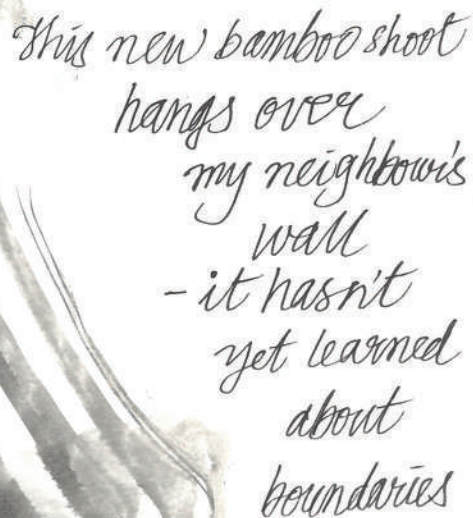 This new bamboo shoot
hangs over
my neighbour's
wall
- it hasn't
yet learned
about
boundaries